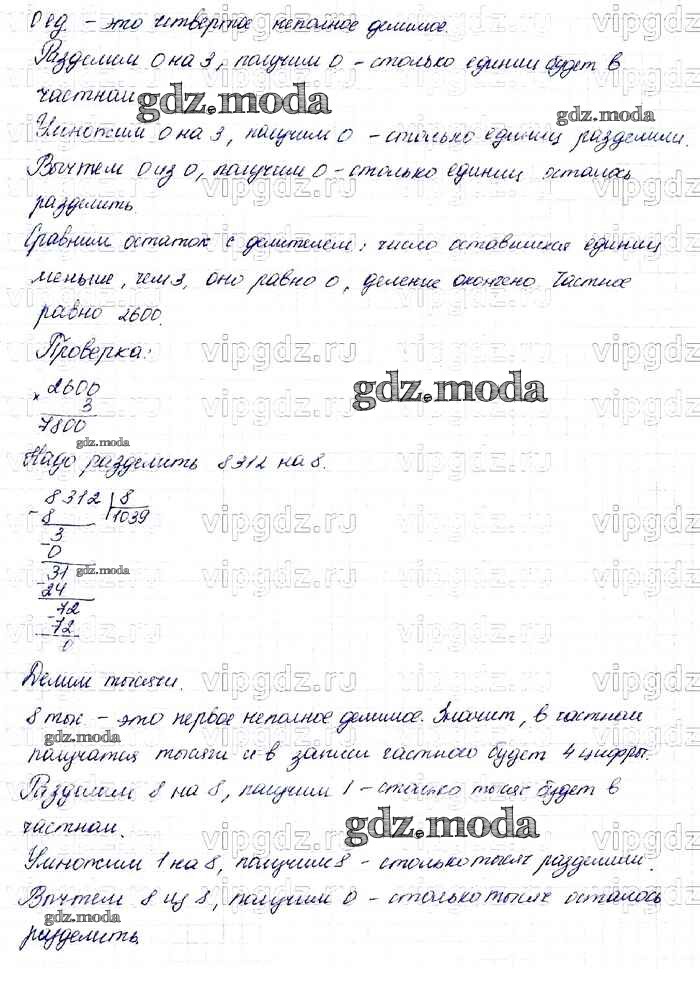 0 ед. – это четвертое неполное делимое.
Разделим 0 на 3, получим 0 – столько единиц будет в
частном.
gdz.moda
gdz.moda
Умножим 0 на 3, получим 0 – столько единиц разделили.
Вычтем 0 из 0, получим 0 – столько единиц осталось
разделить
Сравним остаток с делителем: число оставшихся единиц
меньше, чем 3, оно равно 0, деление окончено. Частное
равно 2600.
Проверка:
× 2600
gdz.moda
3
7800
gdz.moda
Надо разделить 8312 на 8.
8312 | 8
- 8 1039
3
- 0
31 gdz.moda
- 24
72
- 72
0
Делим тысячи.
8 тыс – это первое неполное делимое. Значит, в частном
gdz.moda
получатся тысячи и в записи частного будет 4 цифры.
Разделим 8 на 8, получим 1 – столько тысяч будет в
частном.
gdz.moda
Умножим 1 на 8, получим 8 – столько тысяч разделили.
Вычтем 8 из 8, получим 0 – столько тысяч осталось
gdz.moda
разделить.
vipgdz.ru